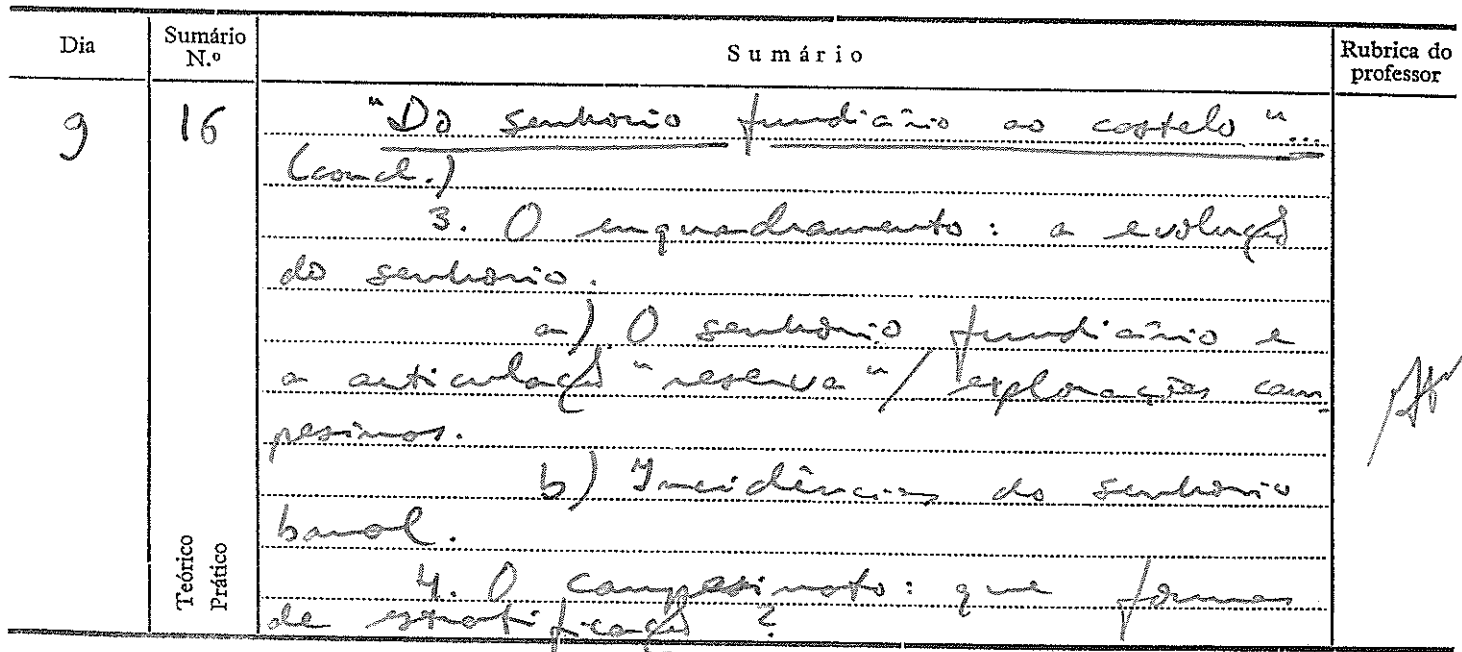 Dia
Sumário N.º
Sumário
Rubrica do professor
9
16
"Do senhorio fundiário ao castelo"...
(concl.)
3. O enquadramento: a evolução
do senhorio.
a) O senhorio fundiário e
a articulação "reserva"/ explorações cam-
pesinas.
b) Incidências do senhorio
banal.
4. O campesinato: que formas
de estratificação?
Teórico
Prático